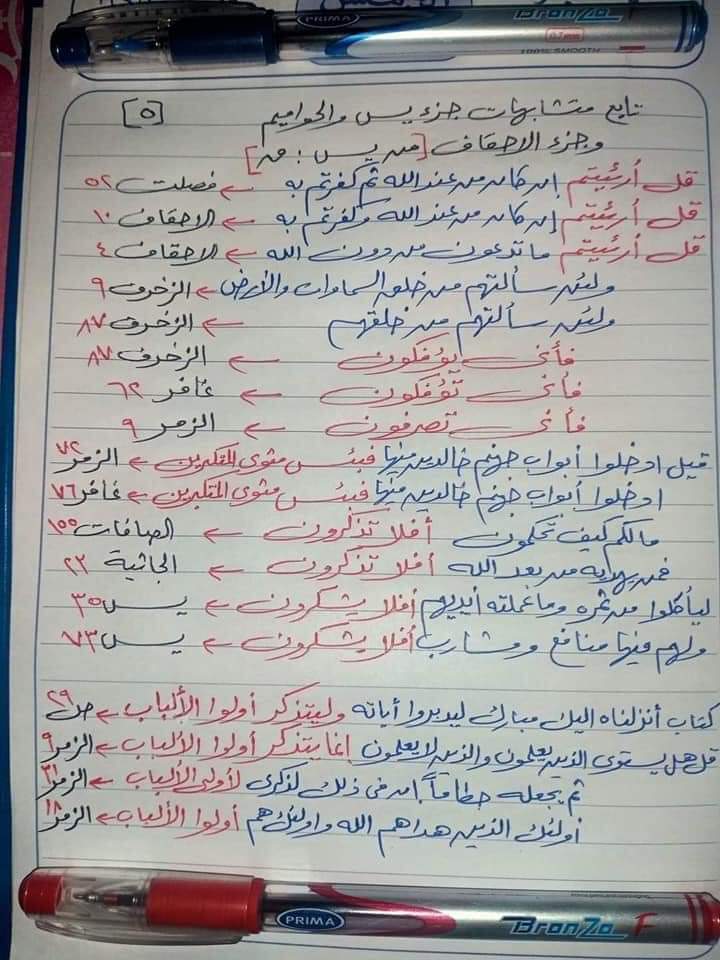 PRIMA BronZa
0.7mm
100% SMOOTH
تابع متشابهات جزء يس والحواميم [٥]
وجزء الاحقاف [من يس : ق]
قل أرئيتم إن كان من عند الله ثم كفرتم به ← فصلت ٥٢
قل أرئيتم إن كان من عند الله وكفرتم به ← الاحقاف ١٠
قل أرئيتم ما تدعون من دون الله ← الاحقاف ٤
ولئن سألتهم من خلق السماوات والأرض ← الزخرف ٩
ولئن سألتهم من خلقهم ← الزخرف ٨٧
فأنى يؤفكون ← الزخرف ٨٧
فأنى تؤفكون ← غافر ٦٢
فأنى تصرفون ← الزمر ٩
قيل ادخلوا أبواب جهنم خالدين فيها فبئس مثوى المتكبرين ← الزمر ٧٢
ادخلوا أبواب جهنم خالدين فيها فبئس مثوى المتكبرين ← غافر ٧٦
مالكم كيف تحكمون أفلا تذكرون ← الصافات ١٥٥
فمن يهديه من بعد الله أفلا تذكرون ← الجاثية ٢٣
ليأكلوا من ثمره وما عملته أيديهم أفلا يشكرون ← يس ٣٥
ولهم فيها منافع ومشارب أفلا يشكرون ← يس ٧٣
كتاب أنزلناه اليك مبارك ليدبروا أياته وليتذكر أولوا الألباب ← ص ٢٩
قل هل يستوى الذين يعلمون والذين لا يعلمون إنما يتذكر أولوا الألباب ← الزمر ٩
ثم يجعله حطاماً إن فى ذلك لذكرى لأولى الألباب ← الزمر ٢١
أولئك الذين هداهم الله واولئك هم أولوا الألباب ← الزمر ١٨
PRIMA BronZa F